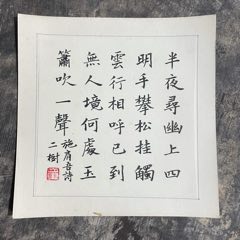 半夜尋幽上四
明手攀松桂觸
雲行相呼已到
無人境何處玉
簫吹一聲
施肩吾詩
二樹